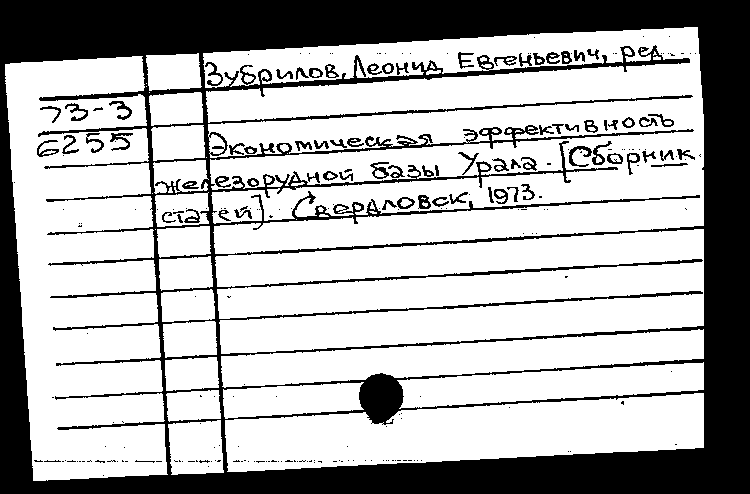 Зубрилов, Леонид Евгеньевич, ред.
73-3
6255
Экономическая эффективность
железорудной базы Урала. [Сборник
статей]. Свердловск, 1973.